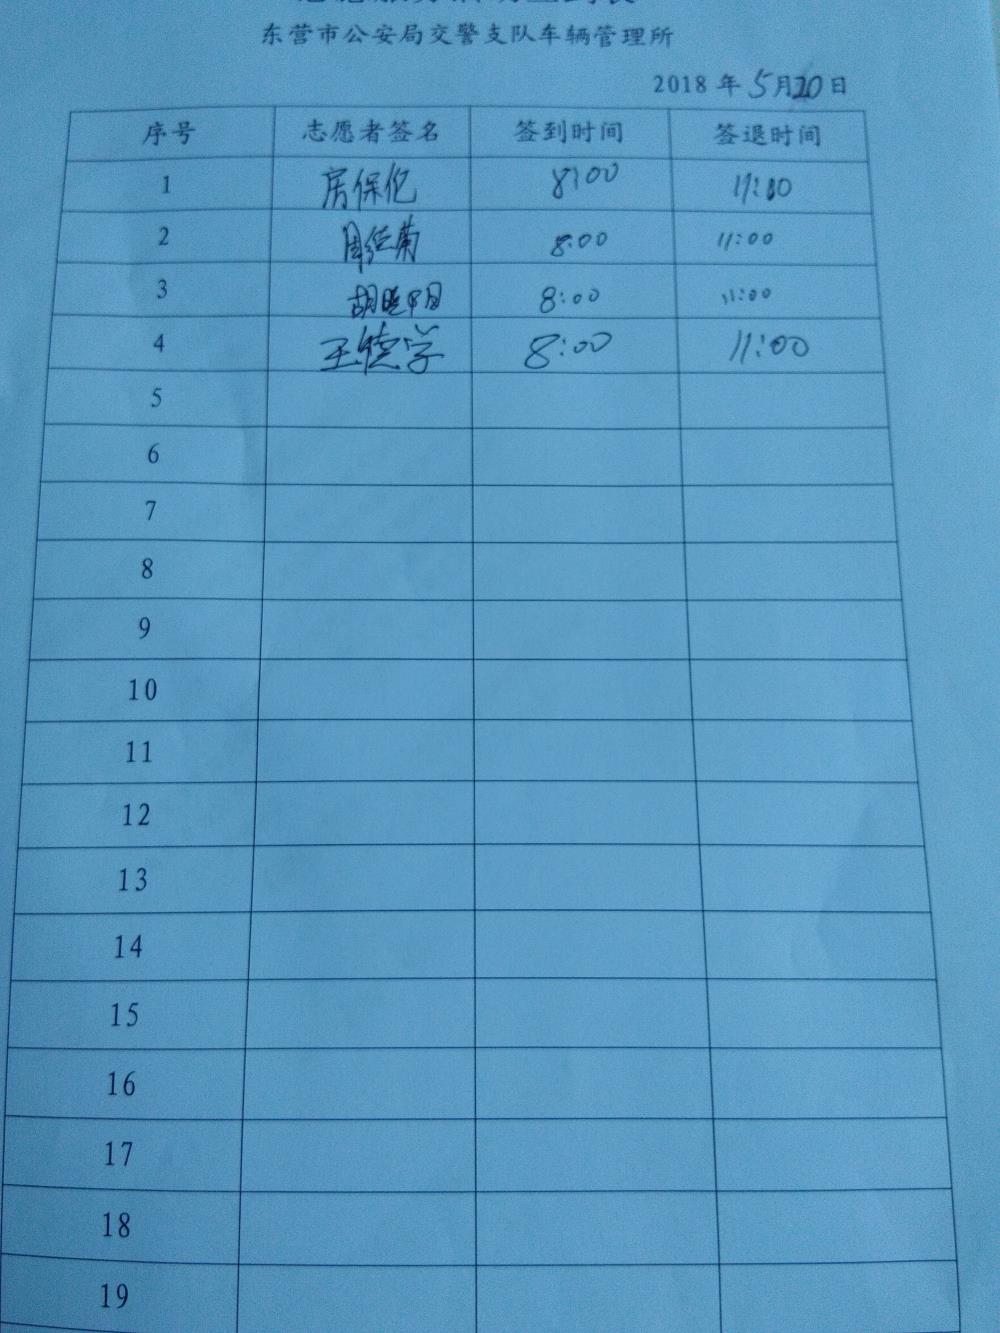 东营市公安局交警支队车辆管理所
2018 年 5月20日
序号 志愿者签名 签到时间 签退时间
1 房保伦 8:00 11:00
2 周红菊 8:00 11:00
3 胡晓明 8:00 11:00
4 王德学 8:00 11:00
5
6
7
8
9
10
11
12
13
14
15
16
17
18
19